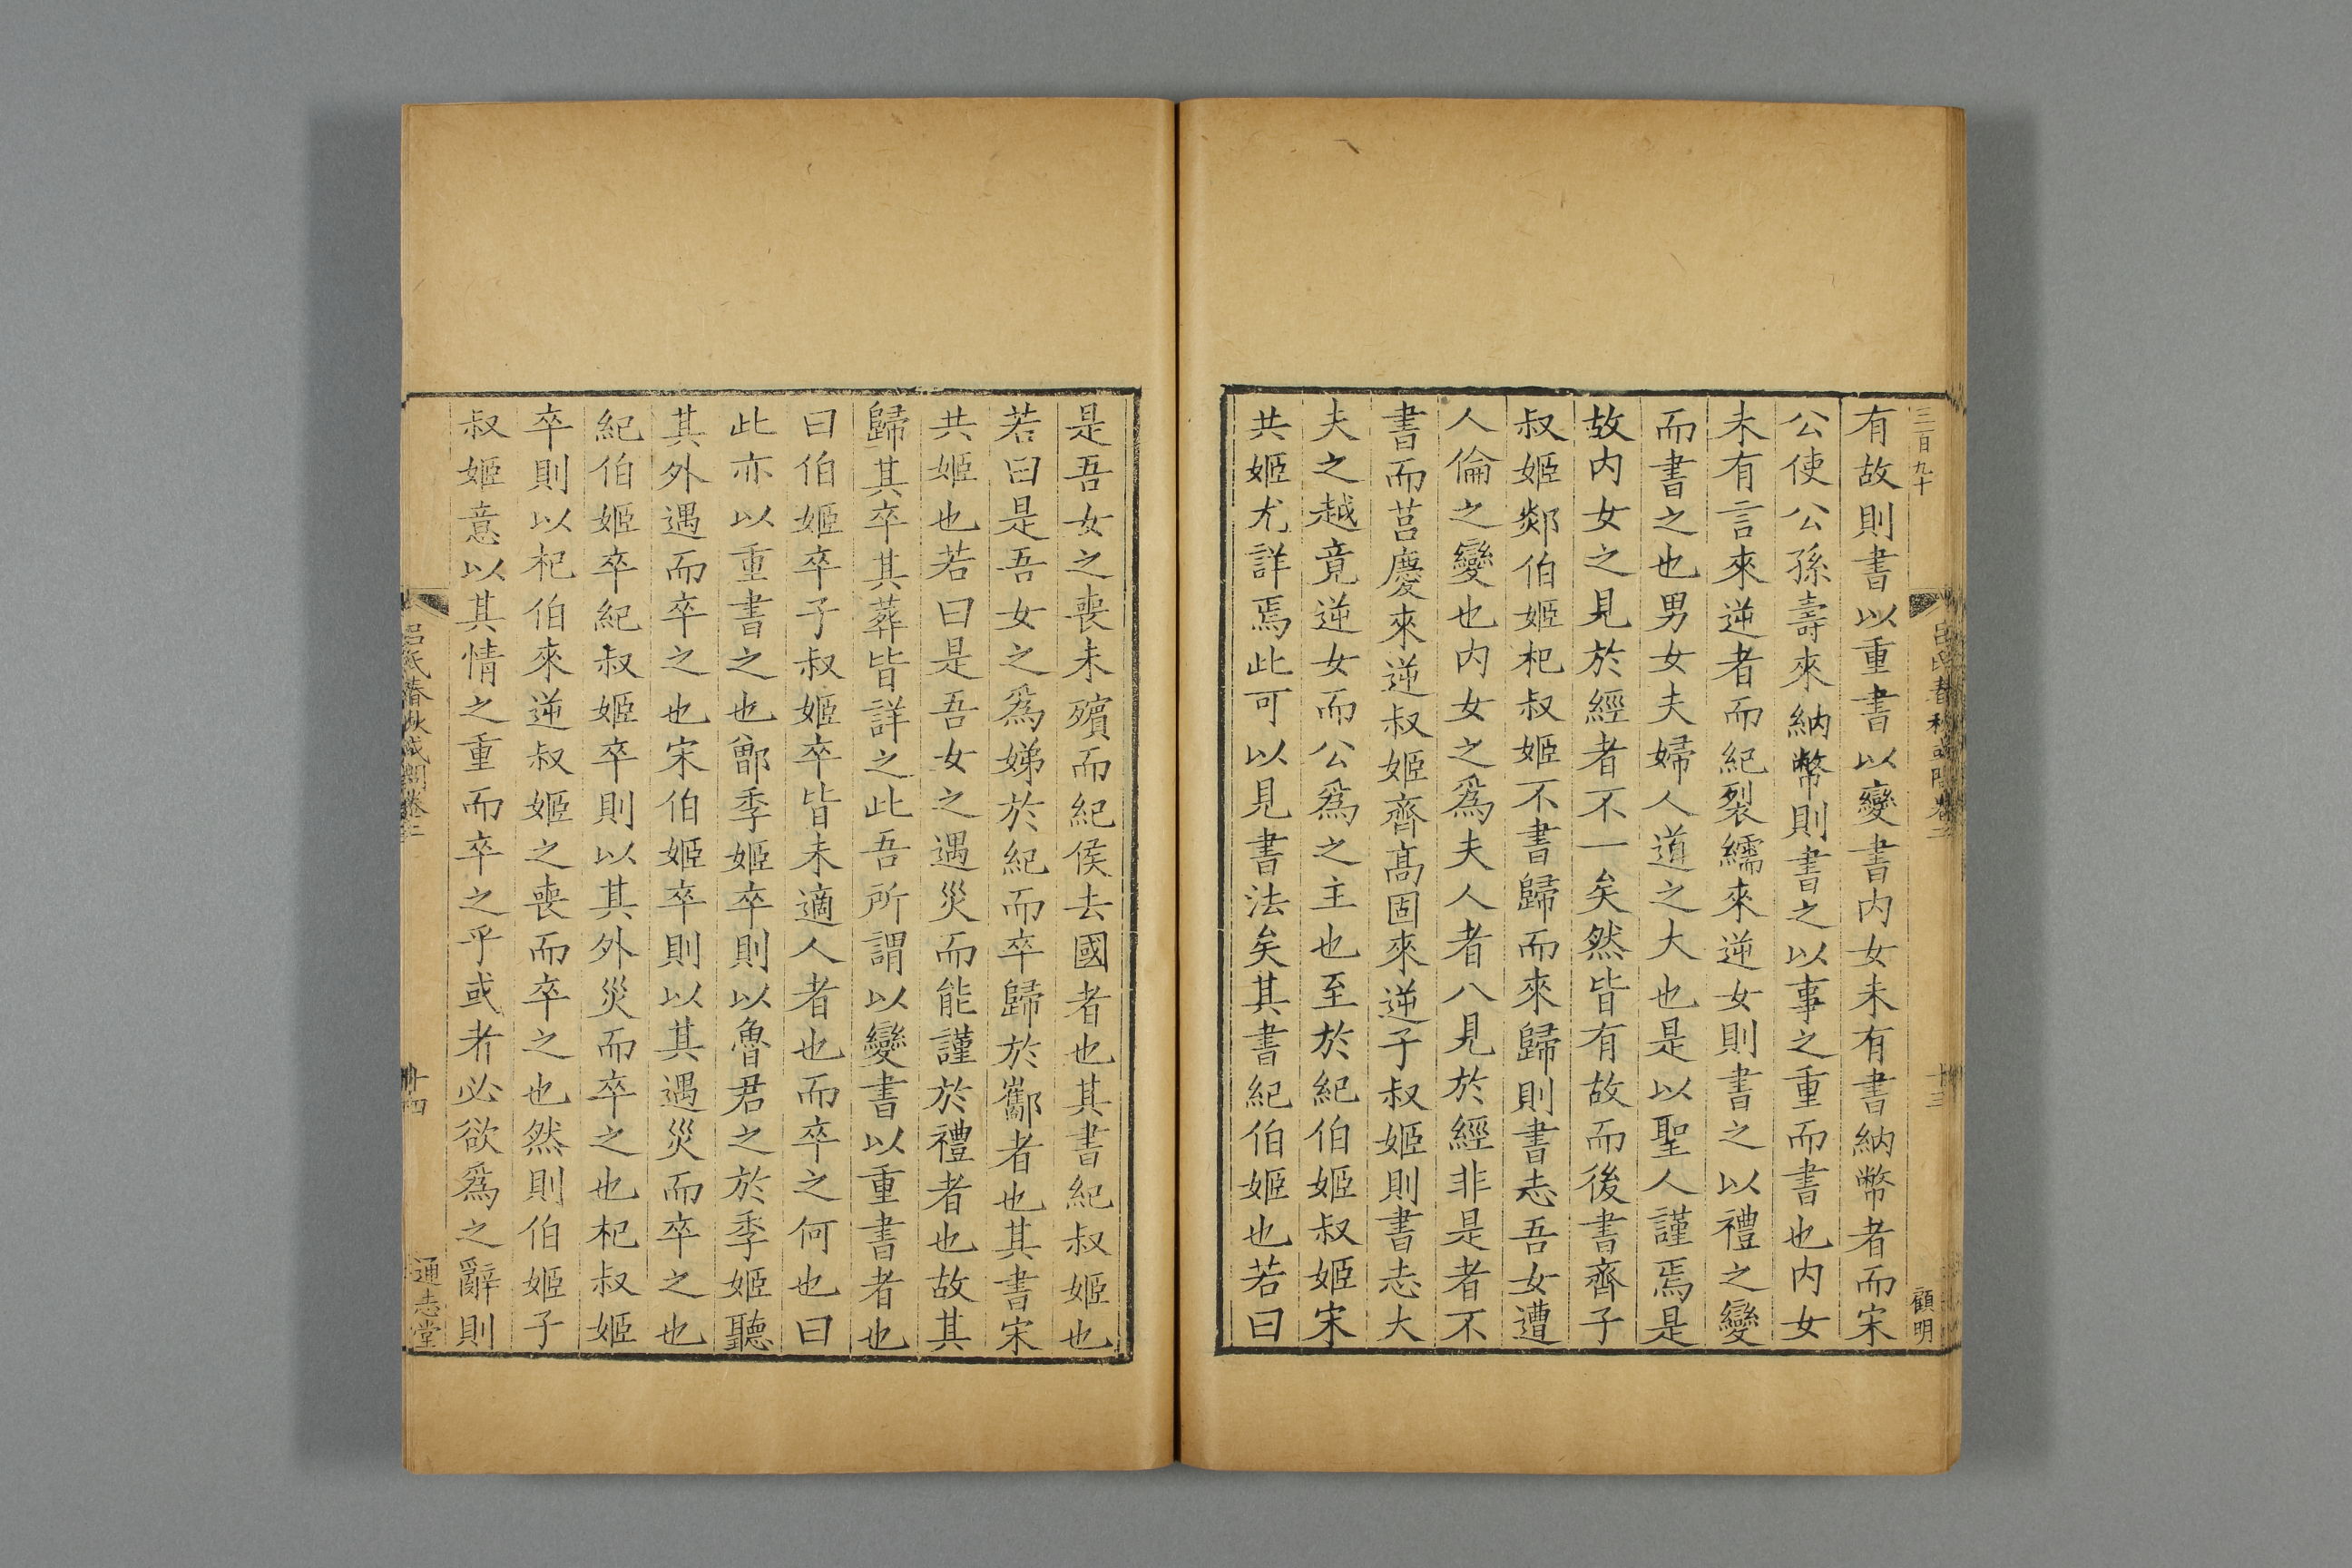 三百九十
顧明
十三
有故則書以重書以變書内女未有書納幣者而宋
公使公孫壽來納幣則書之以事之重而書也内女
未有言來逆者而紀裂繻來逆女則書之以禮之變
而書之也男女夫婦人道之大也是以聖人謹焉是
故内女之見於經者不一矣然皆有故而後書齊子
叔姬郯伯姬杞叔姬不書歸而來歸則書志吾女遭
人倫之變也内女之爲夫人者八見於經非是者不
書而莒慶來逆叔姬齊髙固來逆子叔姬則書志大
夫之越竟逆女而公爲之主也至於紀伯姬叔姬宋
共姬尤詳焉此可以見書法矣其書紀伯姬也若曰
是吾女之喪未殯而紀侯去國者也其書紀叔姬也
若曰是吾女之爲娣於紀而卒歸於酅者也其書宋
共姬也若曰是吾女之遇災而能謹於禮者也故其
歸其卒其葬皆詳之此吾所謂以變書以重書者也
曰伯姬卒子叔姬卒皆未適人者也而卒之何也曰
此亦以重書之也鄫季姬卒則以魯君之於季姬聽
其外遇而卒之也宋伯姬卒則以其遇災而卒之也
紀伯姬卒紀叔姬卒則以其外災而卒之也杞叔姬
卒則以杞伯來逆叔姬之喪而卒之也然則伯姬子
叔姬意以其情之重而卒之乎或者必欲爲之辭則
吕氏春秋或問卷二
十四
通志堂